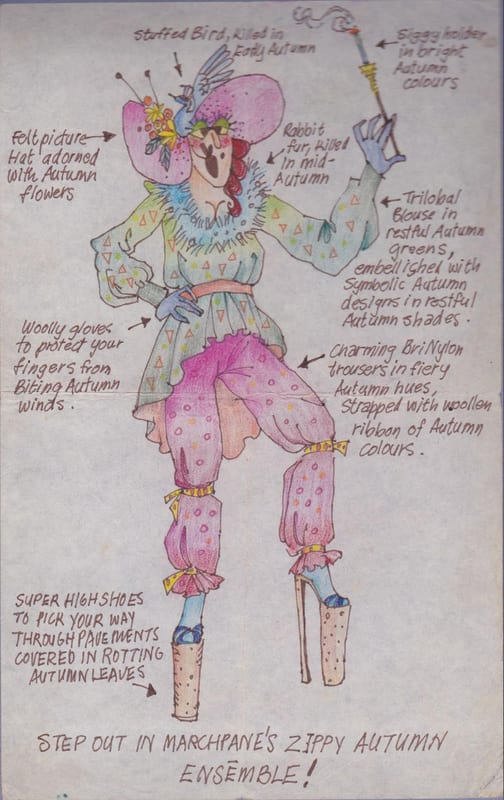 Stuffed Bird, killed in
Early Autumn
Ciggy holder
in bright
Autumn
colours
Felt picture
Hat adorned
with Autumn
flowers
Rabbit
fur, killed
in mid-
Autumn
Trilobal
Blouse in
restful Autumn
greens,
embellished with
Symbolic Autumn
designs in restful
Autumn shades.
Woolly gloves
to protect your
fingers from
Biting Autumn
winds.
Charming BriNylon
trousers in fiery
Autumn hues,
Strapped with woollen
ribbon of Autumn
colours.
SUPER HIGH SHOES
TO PICK YOUR WAY
THROUGH PAVEMENTS
COVERED IN ROTTING
AUTUMN LEAVES
STEP OUT IN MARCHPANE'S ZIPPY AUTUMN
ENSĒMBLE!